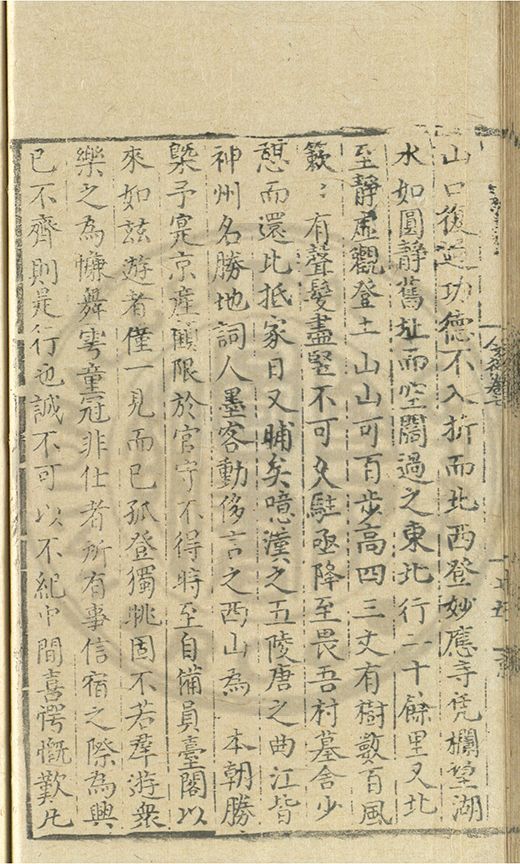 山口復過功德不入折而北西登妙應寺凭欄望湖
水如圓靜舊址而空闊過之東北行二十餘里又北
至靜虛觀登土山山可百步高四三丈有樹數百風
簌〻有聲髮盡竪不可久駐亟降至畏吾村墓舍少
憩而還比抵家日又晡矣噫漢之五陵唐之曲江皆
神州名勝地詞人墨客動侈言之西山為 本朝勝
槩予寔京產顧限於官守不得時至自備員臺閣以
來如兹遊者僅一見而已孤登獨眺固不若羣游衆
樂之為慊舞雩童冠非仕者所有事信宿之際為興
已不齊則是行也誠不可以不紀中間喜愕慨歎凡